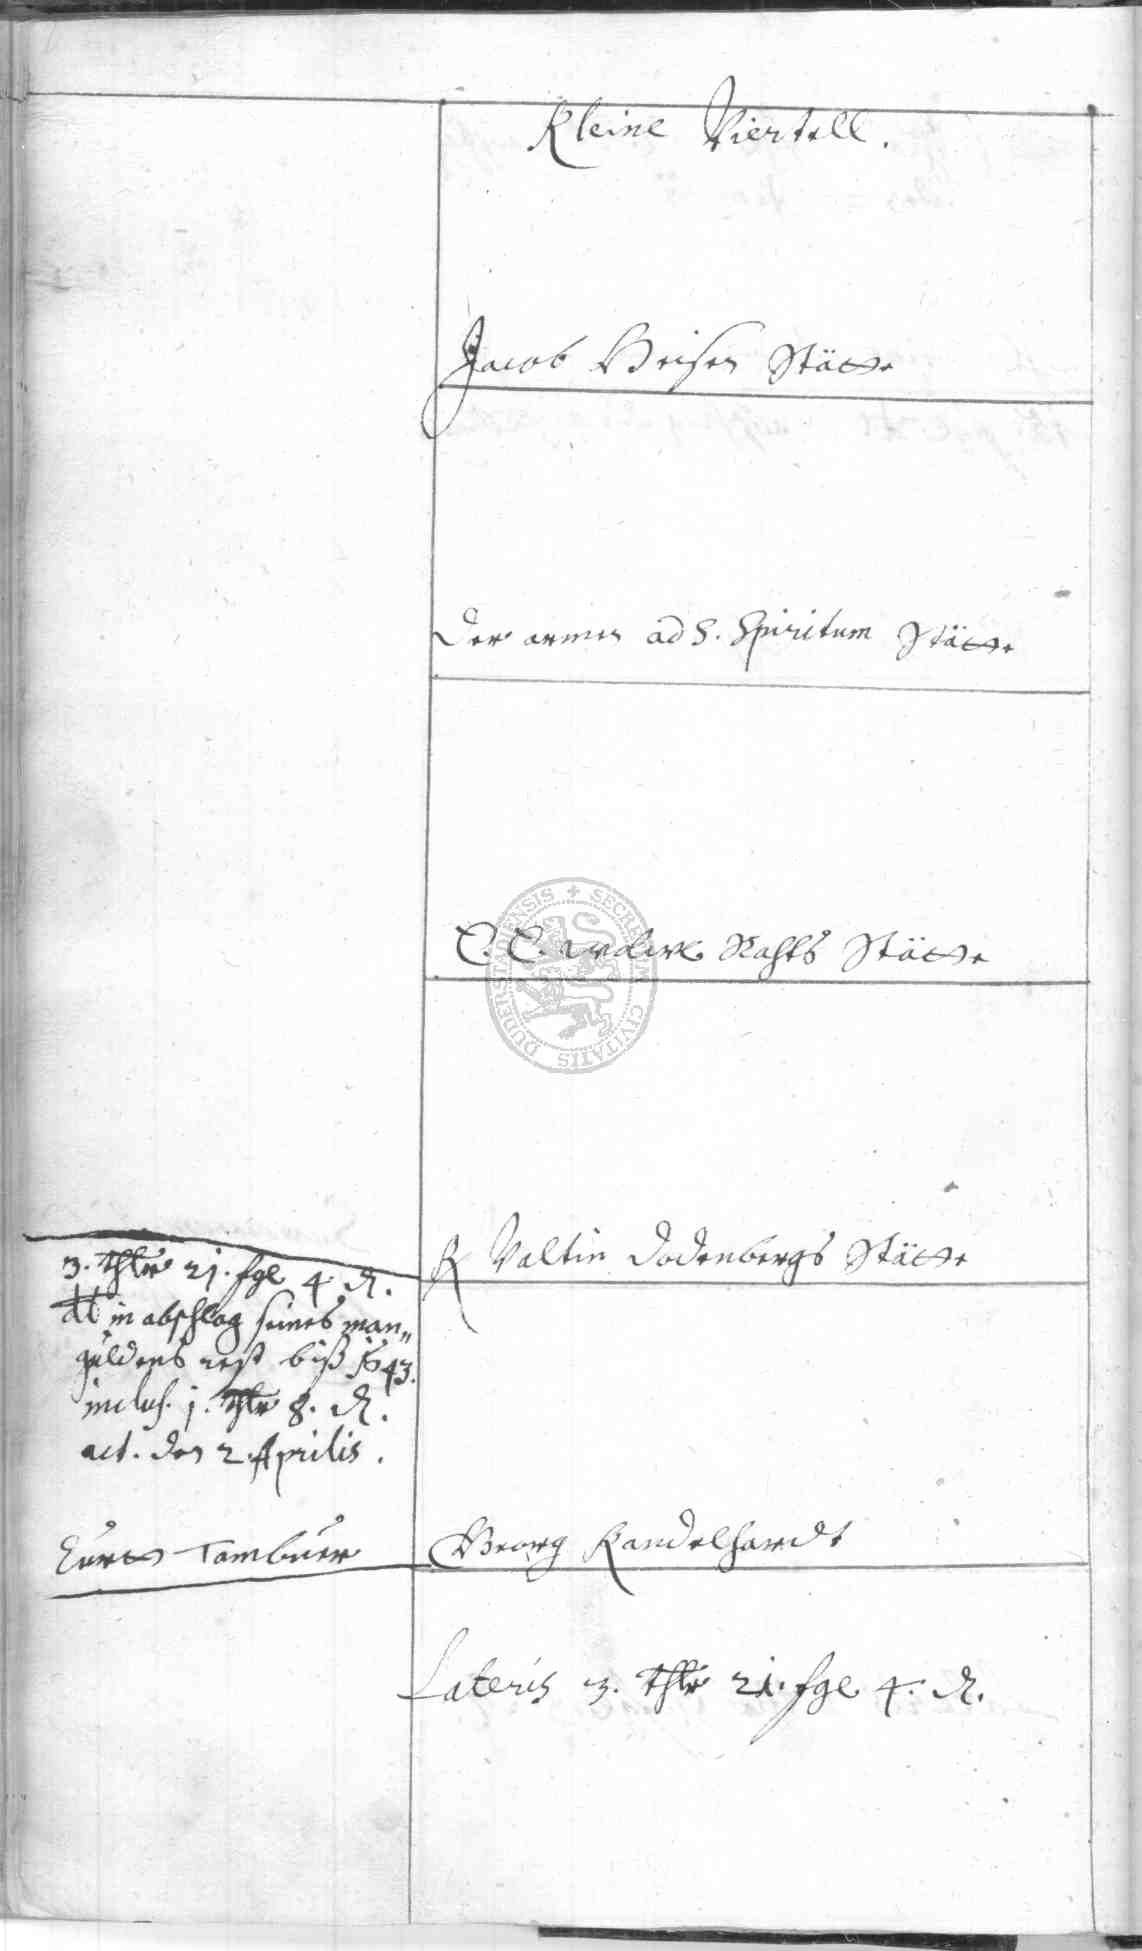 Kleine Viertell.
Jacob Geisen Stätte
Der armen ad S. Spiritum Stätte
E. E. Rahts Stätte
SECRETUM CIVITATIS DUDERSTADIENSIS
Valtin Dodenbergs Stätte
3. thlr 21. sgl 4 d.
dt in abschlag seines man„
guldens rest biß 43.
inclus. 1. thlr 8. d.
act. den 2. Aprilis.
Curtt Tambuer
Georg Kandelhardt
Lateris 3. thlr 21. sgl 4. d.